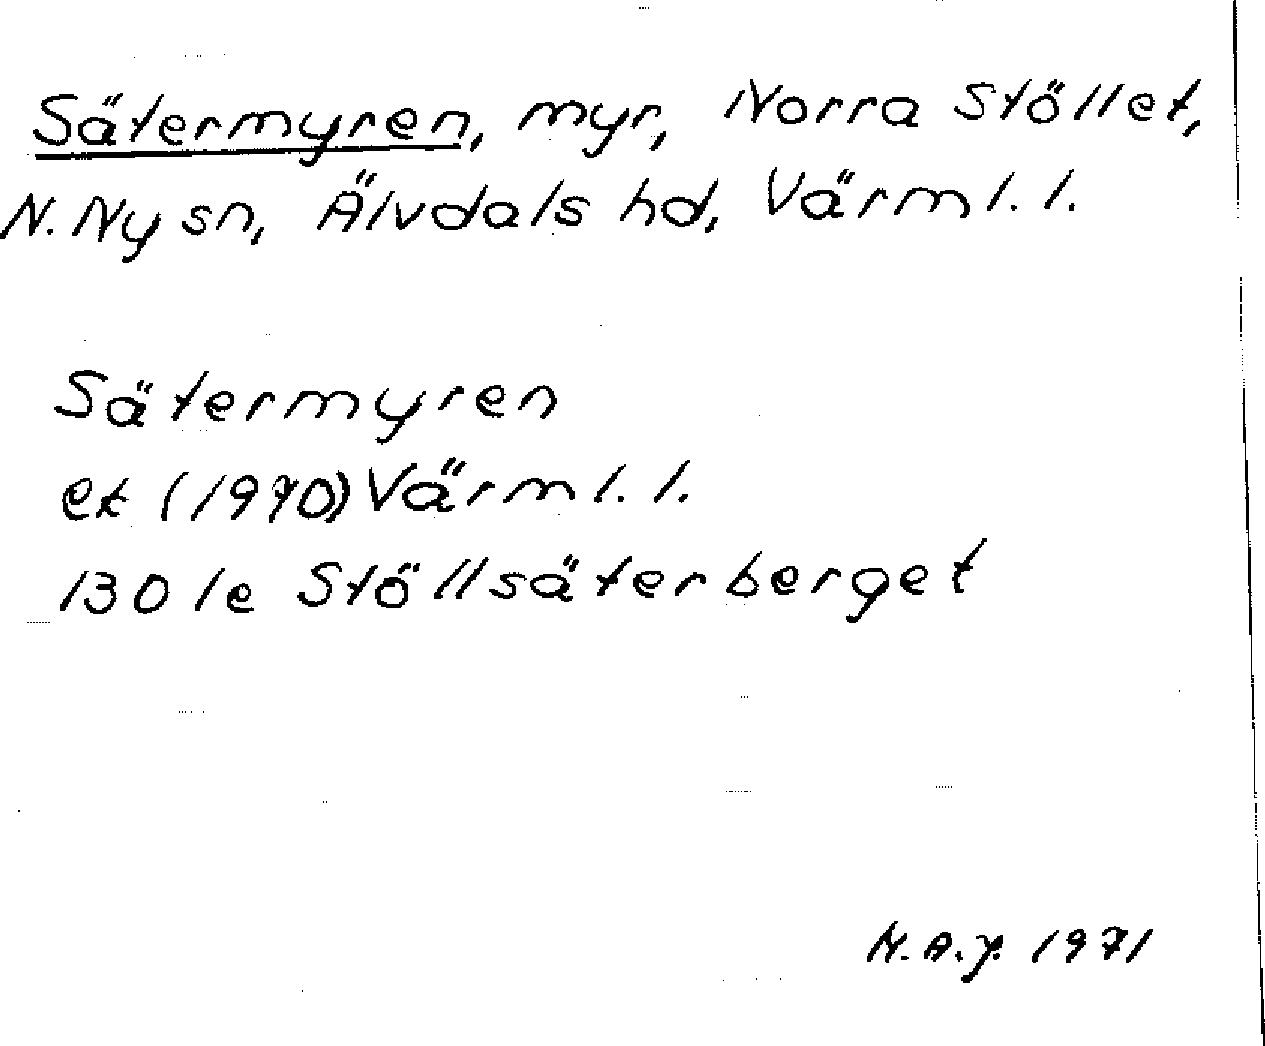 Sätermyren, myr, Norra Stöllet,
N. Ny sn, Älvdals hd, Värml. l.
Sätermyren
ek (1970) Värml. l.
130 1e Stöllsäterberget
N. A. J. 1971